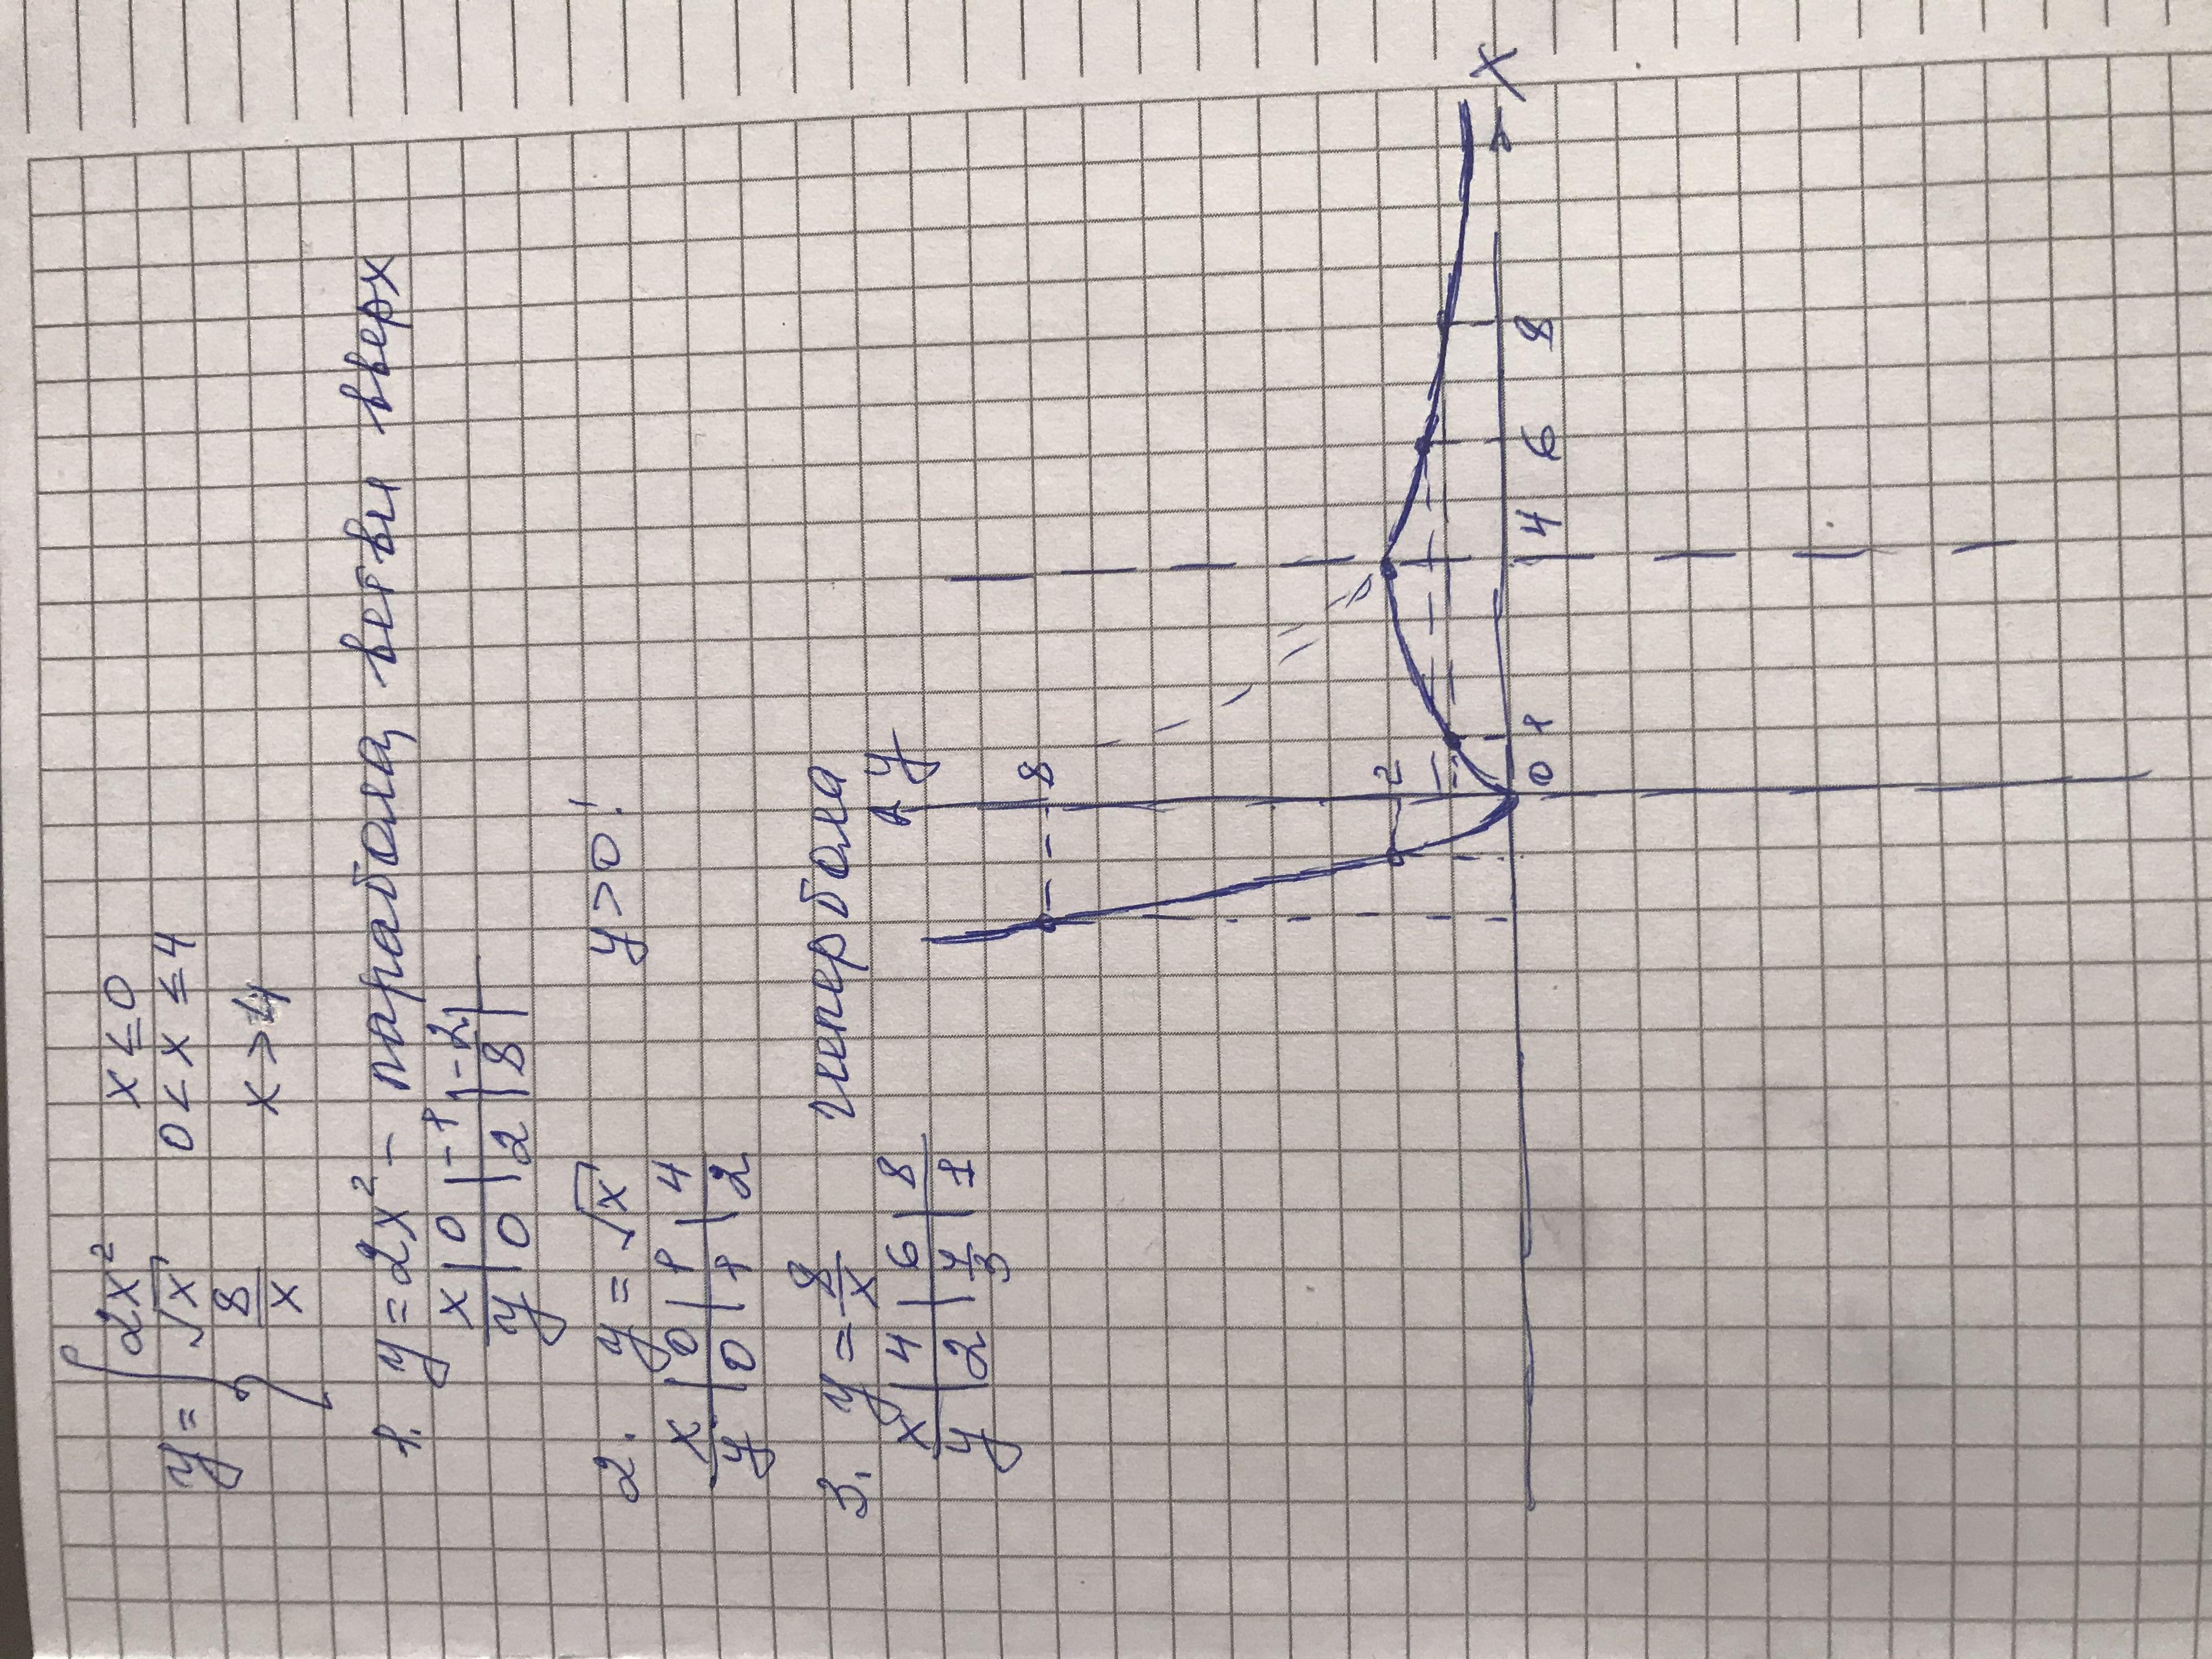 y = { 2x² x ≤ 0
√x 0 < x ≤ 4
8/x x > 4
1. y = 2x² – парабола, ветви вверх
x | 0 | -1 | -2 |
y | 0 | 2 | 8 |
2. y = √x y > 0!
x | 0 | 1 | 4
y | 0 | 1 | 2
3. y = 8/x гипербола
x | 4 | 6 | 8
y | 2 | 4/3 | 1
y
8
2
0 1 4 6 8 X